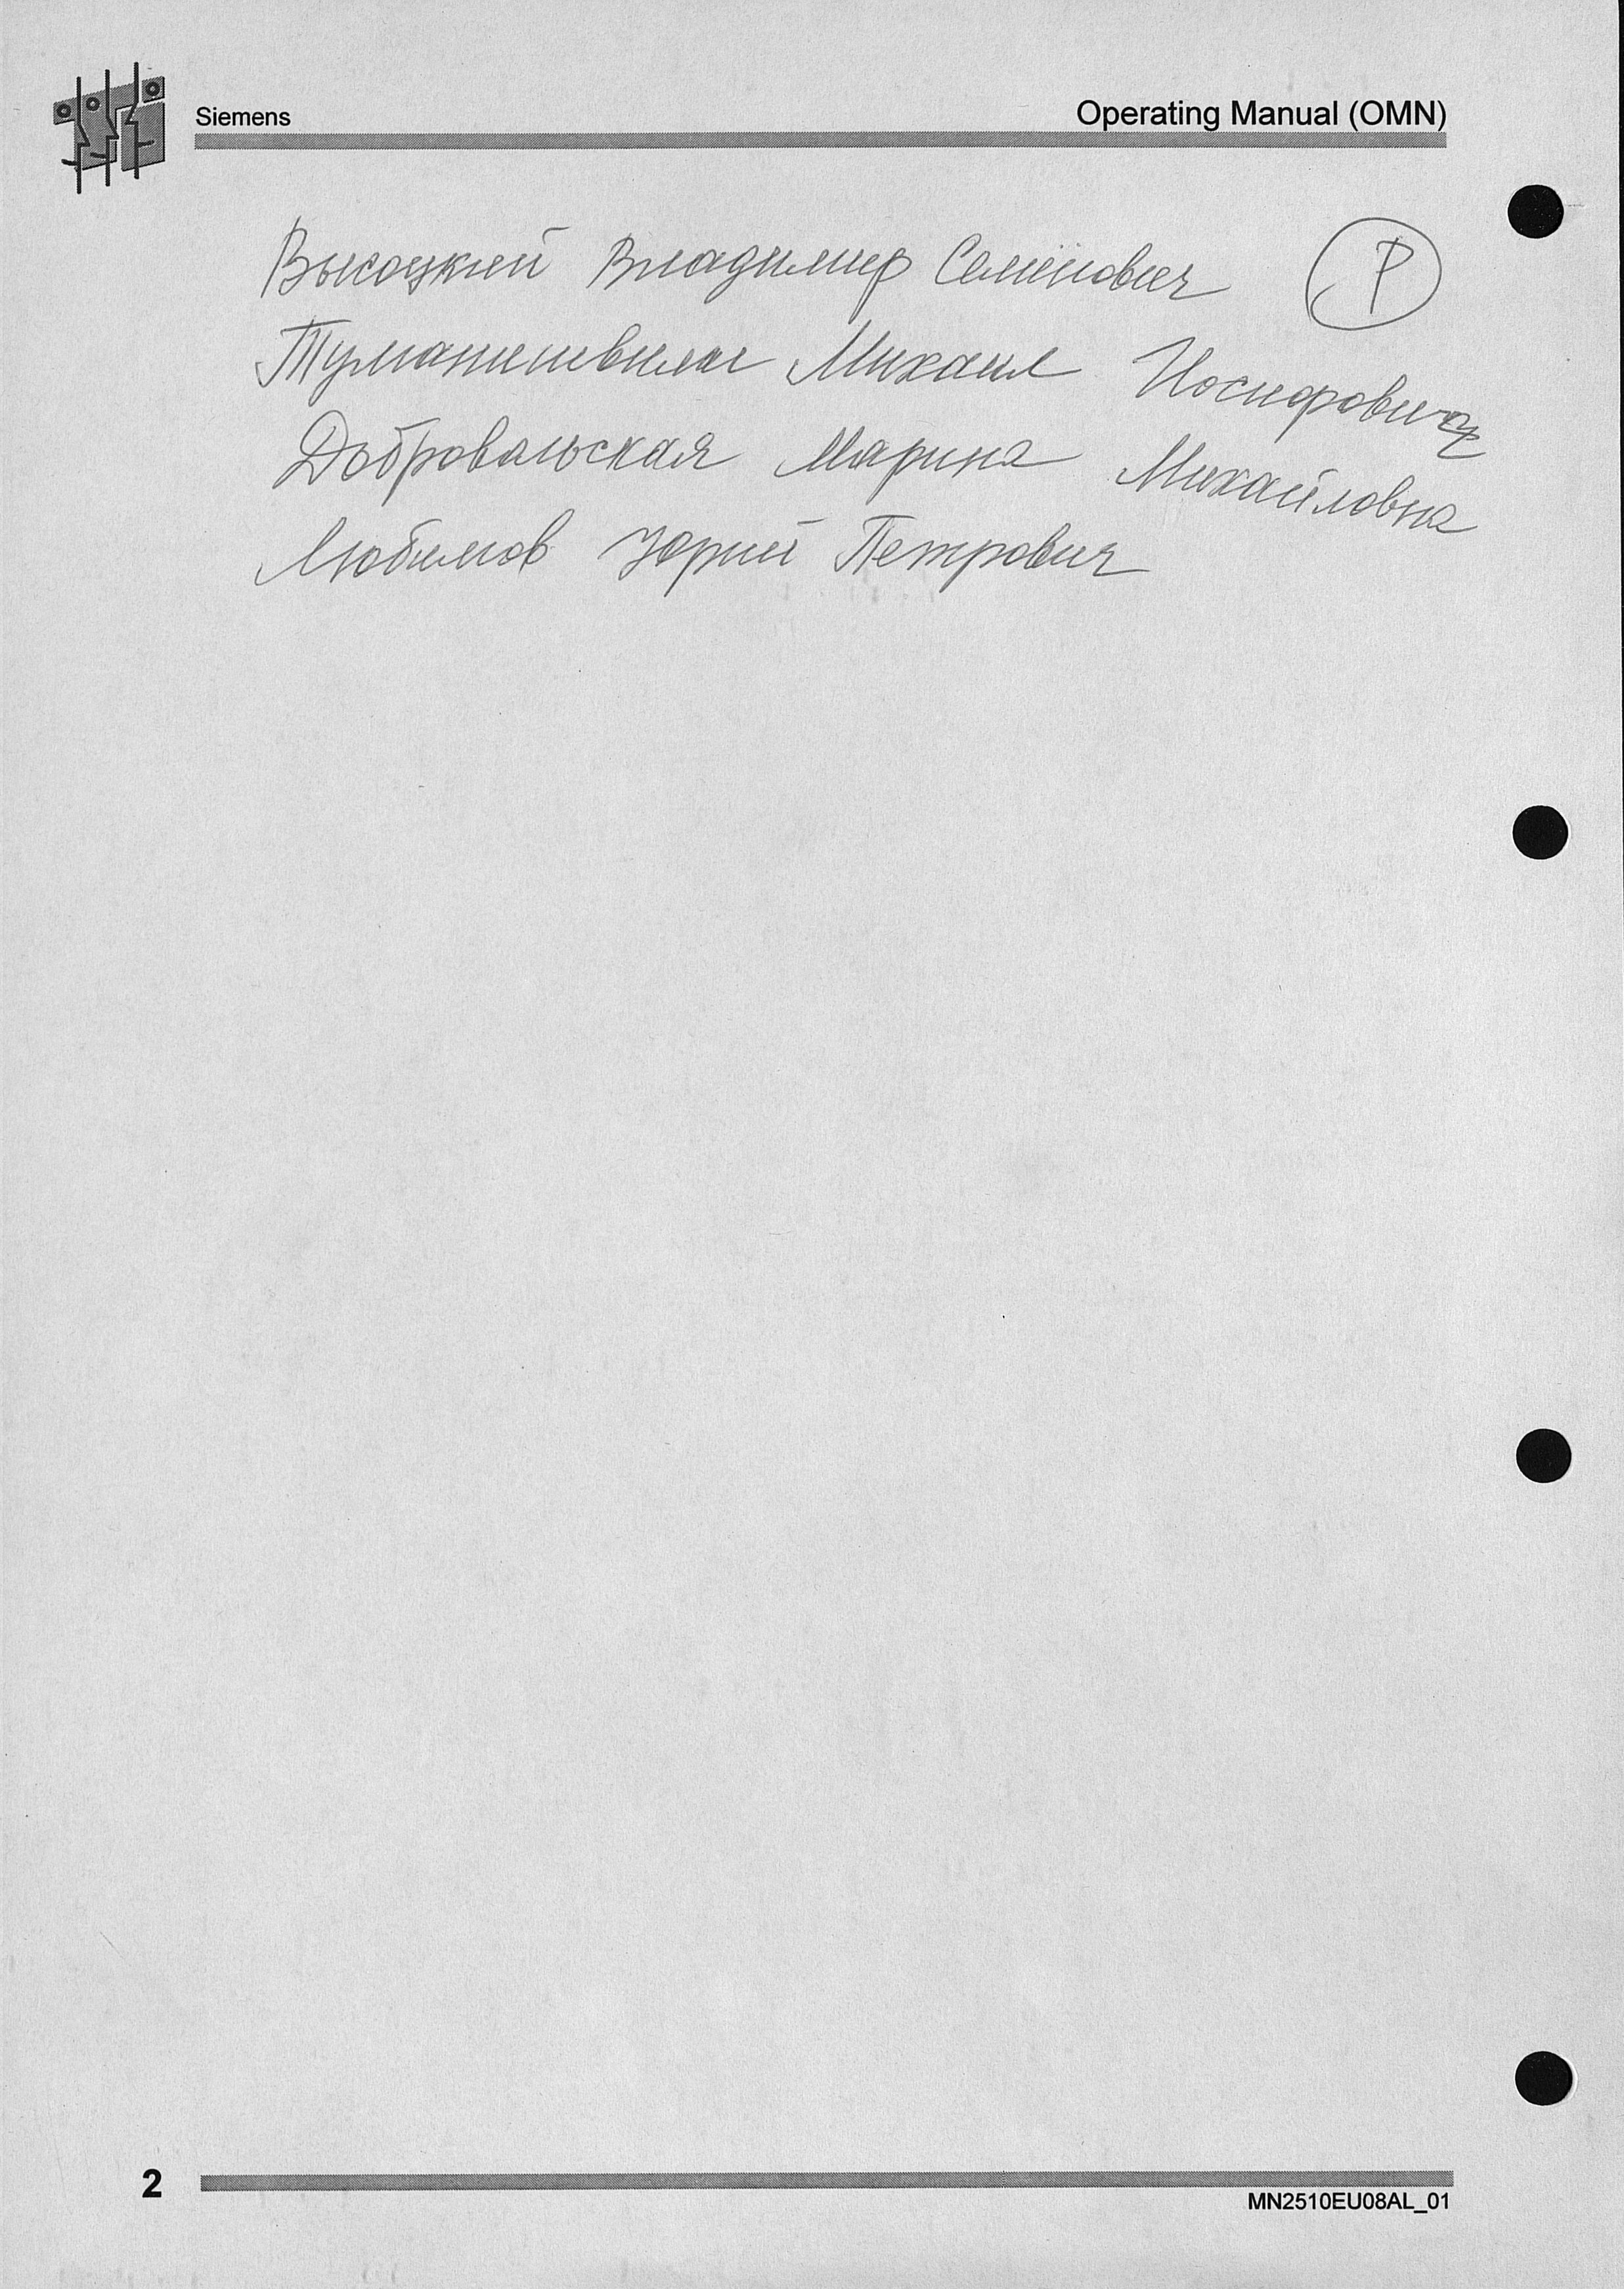 Siemens
Operating Manual (OMN)
Высоцкий Владимир Семёнович
Р
Туманишвили Михаил Иосифович
Добровольская Марина Михайловна
Любимов Юрий Петрович
2
MN2510EU08AL_01